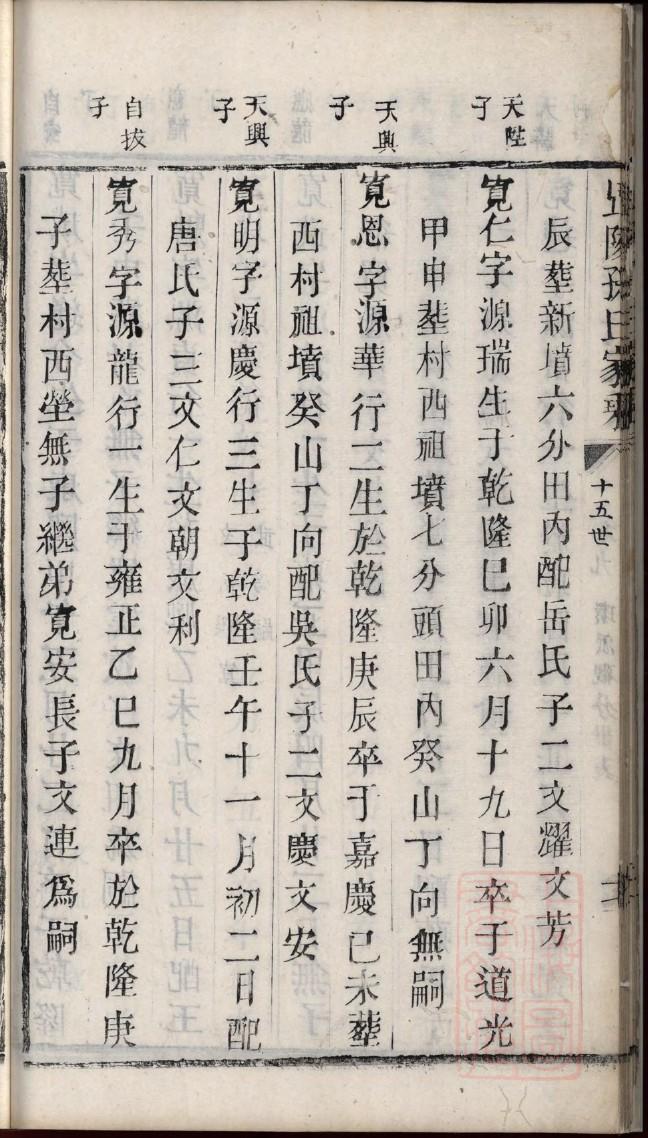 孫氏家乘
十五世
辰塟新墳六分田內配岳氏子二文耀文芳
天陞子
寬仁字源瑞生于乾隆己卯六月十九日卒于道光
甲申塟村西祖墳七分頭田內癸山丁向無嗣
天興子
寬恩字源華行二生於乾隆庚辰卒于嘉慶己未塟
西村祖墳癸山丁向配吳氏子二文慶文安
天興子
寬明字源慶行三生于乾隆壬午十一月初二日配
唐氏子三文仁文朝文利
自拔子
寬秀字源龍行一生于雍正乙巳九月卒於乾隆庚
子塟村西塋無子繼弟寬安長子文連爲嗣